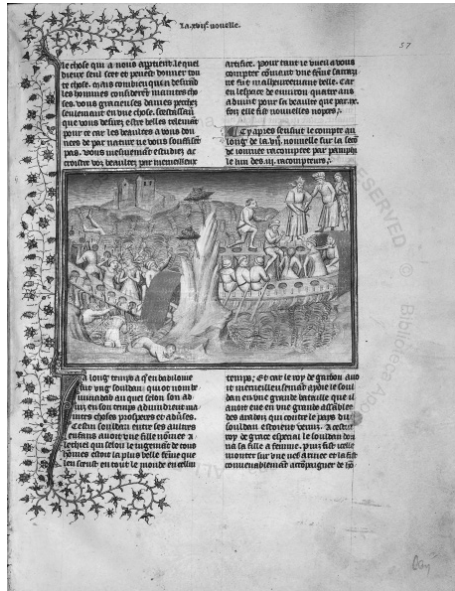 La xviie nouvelle.
37
le chose qui a nous appartient le quel
dieu seul scet et peut donner tou
te chose. mais combien qu en desirant
les hommes
ses. vous gracieuses dames pechez
seulement en une chose. cestassavoir
que vous desirez estre belles telement
pour ce car les beaultez a vous don
nees de par nature ne vous souffisent
pas. vous mesmement estudiez ac
croistre voz beaultez par merveilleux
artifice. pour tant je vueil a vous
compter comant une feme sarrazi
ne fut malheureusement belle. car
en lespace de environ quatre ans
advint pour sa beaulte que par ix.
fois elle fist nouvelles nopces.
Cy apres sensuit le compte au
long de la vii. nouvelle sur la secon
de journee racomptee par pamphi
le lun des iii. racompteurs.
a long temps a q en babiloine
fut ung souldan qui ot nom be
minadab au quel selon son ad
vis en son temps advindrent ma
intes choses prosperes et aduses.
Cestui souldan entre ses aultres
enfans avoit une fille nomee a
lechiel qui selon le jugement de tous
homes estoit la plus belle feme que
len sceust en tout le monde en cellui
temps. Et car le roy de garbou avo
it merveilleusement aydie le soul
dan en une grande bataille que il
avoit eue en une grande assemblee
des arabois qui contre le pays du
souldan estoient venuz. A cestui
roy de grace especial le souldan don
na sa fille a femme. puis fist icelle
monter sur une nef armee et la fist
convenablement acompaigner de ho
RESERVED © Biblioteca